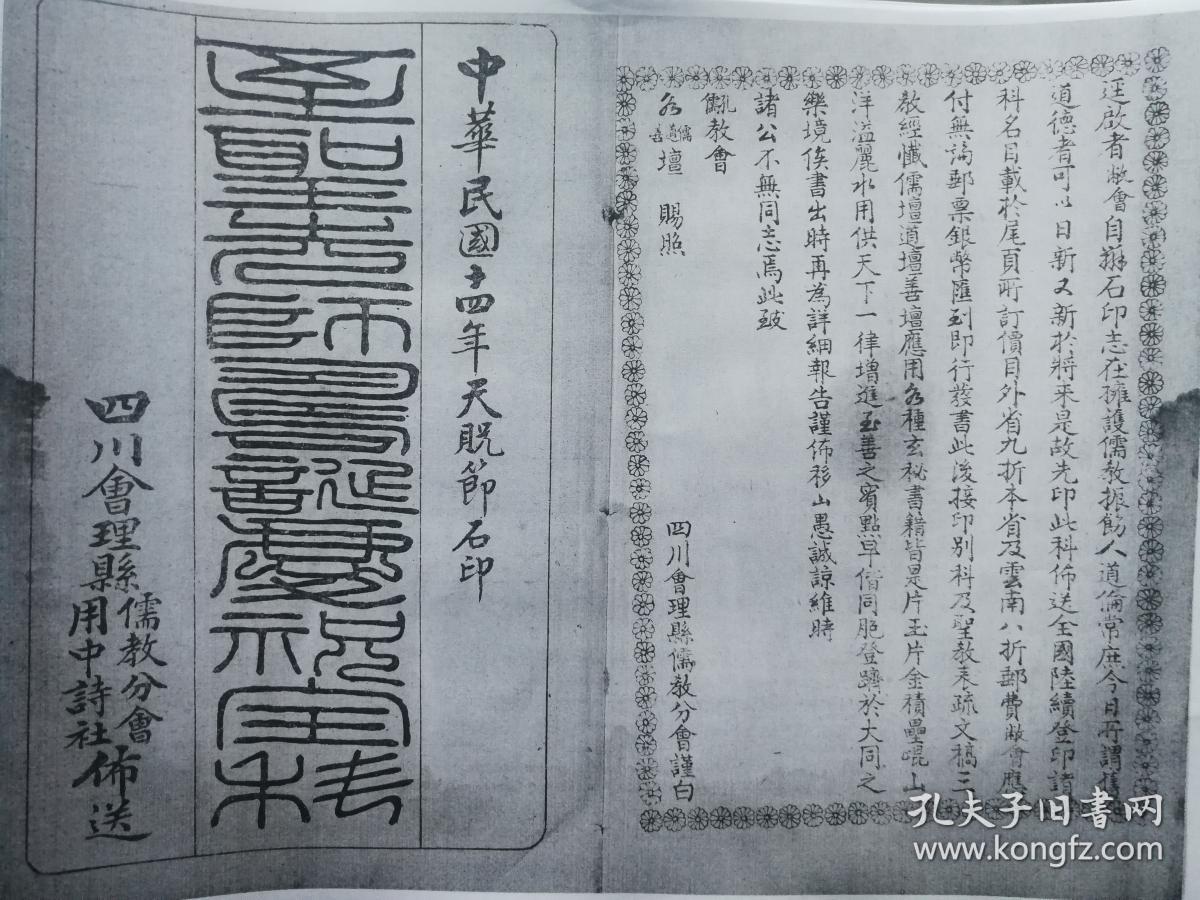 逕啟者敝會自辦石印志在擁護儒教振飭人道倫常庶今日所謂舊
道德者可以日新又新於將來是故先印此科佈送全國陸續登印諸
科名目載於尾頁所訂價目外省九折本省及雲南八折郵費敝會應
付無論郵票銀幣匯到即行發書此後接印別科及聖教表疏文稿三
教經懺儒壇道壇善壇應用各種玄秘書籍皆是片玉片金積壘崐山
洋溢麗水用供天下一律增進至善之賓點早偕同胞登躋於大同之
樂境俟書出時再為詳細報告謹佈移山愚誠諒維時
諸公不無同志焉此致
教會
各儒道善壇 賜照
四川會理縣儒教分會謹白
中華民國十四年天貺節石印
至聖先師誕慶祝科
四川會理縣儒教分會用中詩社佈送
孔夫子旧書网
www.kongfz.com